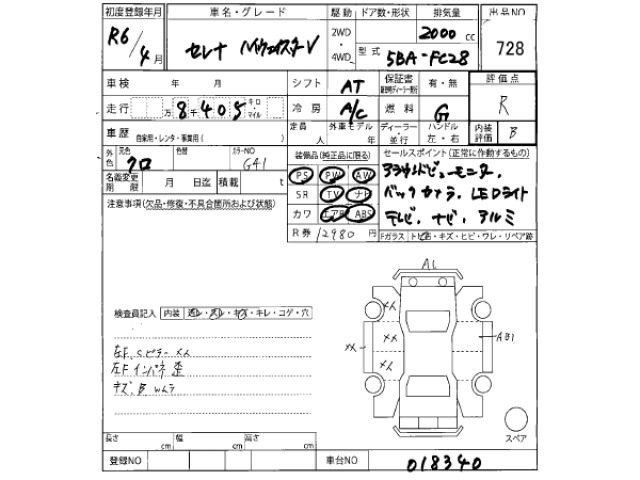 初度登録年月 車名・グレード 駆動 ドア数・形状 排気量 出品NO
R6/4月 セレナ ハイウェイスターV 2WD・4WD 2000cc 728
型式 5BA-FC28
車検 年 月 シフト AT 保証書 有・無 評価点
走行 8405 キロ・マイル 冷房 A/C 燃料 G R
車歴 自家用・レンタ・事業用( ) 定員 人 外車モデル 年 ディーラー・並行 ハンドル 左・右 内装評価 B
外色 元色 クロ 色替 カラーNO G41 装備品(純正品に限る) セールスポイント(正常に作動するもの)
名義変更期限 月 日迄 積載 t PS PW AW アラウンドビューモニター、
注意事項(欠品・修復・不具合箇所および状態) SR TV ナビ バックカメラ、LEDライト
カワ エアB ABS テレビ、ナビ、アルミ
R券 12980円 Fガラス トビ石・キズ・ヒビ・ワレ・リペア跡
AL
検査員記入 内装 汚レ・スレ・キズ・キレ・コゲ・穴
メメ メメ メメ メメ AB1
左F、Cピラー メメ
左Fインパネ 歪
キズ、B、Wムラ
スペア
長さ cm 幅 cm 高さ cm
登録NO 車台NO 018340